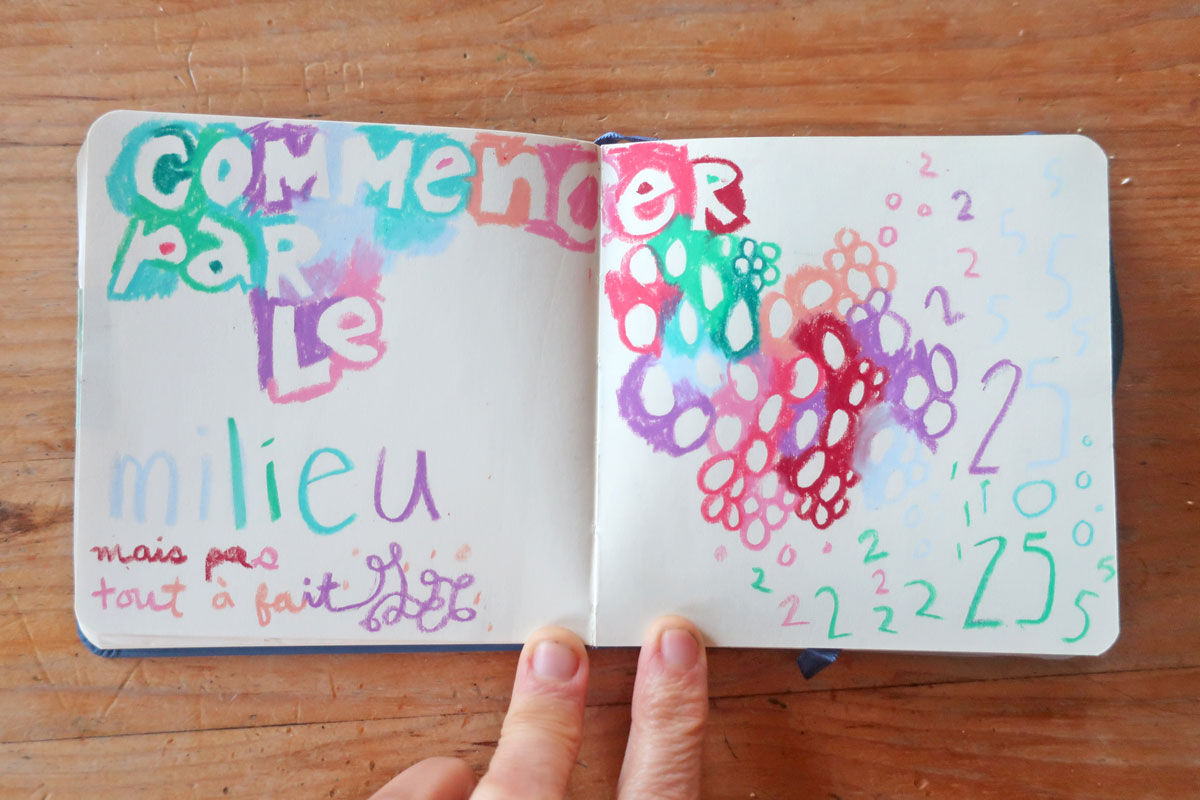 COMMenCeR
paR
Le
milieu
mais pas
tout à fait
2 5
2 5
2 5
2 5 5
25
2 25 5
2 2 2 2 2 2 5